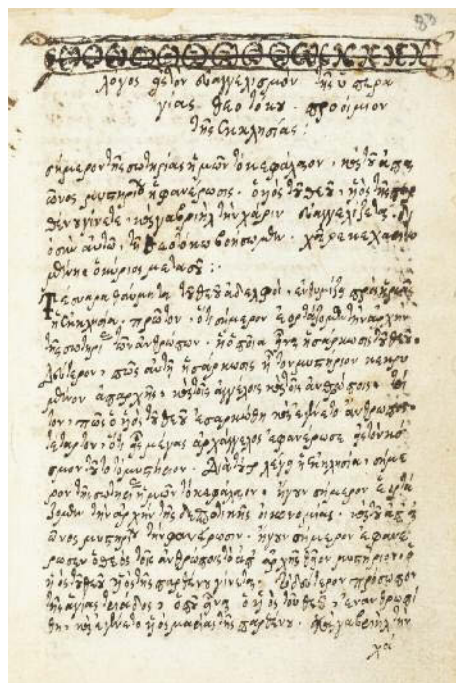 83
λόγος εἰς τὸν εὐαγγελισμὸν τῆς ὑπερα
γίας θεοτόκου. προοίμιον
τῆς ἐκκλησίας:
σήμερον τῆς σωτηρίας ἡμῶν τὸ κεφάλαιον. καὶ τοῦ ἀπ
αἰῶνος μυστηρίου ἡ φανέρωσις. ὁ υἱὸς τοῦ θεοῦ, υἱὸς τῆς παρ
θένου γίνεται. καὶ γαβριὴλ τὴν χάριν εὐαγγελίζεται.
σὺν αὐτῷ, τῇ θεοτόκῳ βοήσωμεν. χαῖρε κεχαριτω
μένη ὁ κύριος μετὰ σοῦ:
Τέσσαρα τοῦ θεοῦ ἀδελφοί,
ἡ ἐκκλησία. πρῶτον, ὅτι σήμερον ἑορτάζομεν τὴν ἀρχὴν
τῆς σωτηρίας τῶν ἀνθρώπων. ἡ ὁποία ἦναι ἡ σάρκωσις τοῦ θεοῦ.
δεύτερον, πῶς αὐτὴ ἡ σάρκωσις ἦτον μυστήριον κεκρυ
μένον ἀπαρχῆς. καὶ τοῖς ἀγγέλοις καὶ τοῖς ἀνθρώποις. τρί
τον, πῶς ὁ υἱὸς τοῦ θεοῦ ἐσαρκώθη καὶ ἐγένετο ἄνθρωπος.
τέταρτον, ὅτι μέγας ἀρχάγγελος ἐφανέρωσε εἰς τὸν κό
σμον τοῦτο τὸ μυστήριον. λέγει ἡ ἐκκλησία, σήμε
ρον τῆς σωτηρίας ἡμῶν τὸ κεφάλαιον. ἤγουν σήμερον ἑορτά
ζομεν τὴν ἀρχὴν τῆς δεσποτικῆς οἰκονομίας. καὶ τοῦ ἀπ αἰ
ῶνος μυστηρίου τὴν φανέρωσιν. ἤγουν σήμερον ἐφανέ
ρωσεν ὁ θεὸς τοῖς ἀνθρώποις τὸ ἀπ ἀρχῆς μυστήριον. ὁ
υἱὸς τοῦ θεοῦ υἱὸς τῆς παρθένου γίνεται. τὸ δεύτερον πρόσωπον
τῆς ἁγίας τριάδος, ὁποῦ ἦναι ὁ υἱὸς τοῦ θεοῦ, ἐνανθρωπί
σθη, καὶ ἐγένετο υἱὸς μαρίας τῆς παρθένου. καὶ γαβριὴλ τὴν
χά